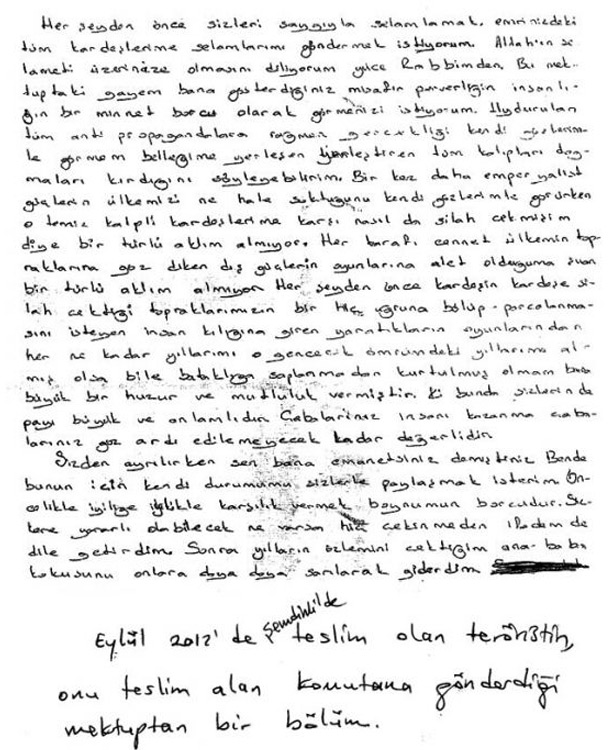 Her şeyden önce sizleri saygıyla selamlamak, emrinizdeki
tüm kardeşlerime selamlarımı göndermek istiyorum. Allah'ın se-
lameti üzerinize olmasını diliyorum yüce Rabbimden. Bu mek-
tuptaki gayem bana gösterdiğiniz misafir perverliğin insanlı-
ğın bir minnet borcu olarak görmenizi istiyorum. Uydurulan
tüm anti propagandalara rağmen gerçekliği kendi gözlerim-
le görmem belleğime yerleşen yerleştiren tüm kalıpları doğ-
maları kırdığını söyleyebilirim. Bir kez daha emperyalist
güçlerin ülkemizi ne hale soktuğunu kendi gözlerimle görürken
o temiz kalpli kardeşlerime karşı nasıl da silah çekmişim
diye bir türlü aklım almıyor. Her tarafı cennet ülkemin top-
raklarına göz diken dış güçlerin oyunlarına alet olduğuma
bir türlü aklım almıyor Her şeyden önce kardeşin kardeşe si-
lah çektiği topraklarımızın bir Hiç uğruna bölüp-parçalanma-
sını isteyen insan kılığına giren yaratıkların oyunlarından
her ne kadar yıllarımı o gencecik ömründeki yıllarımı al-
mış olsa bile bataklığa saplanmadan kurtulmuş olmam bana
büyük bir huzur ve mutluluk vermiştir. Ki bunda sizlerin de
payı büyük ve anlamlıdır Çabalarınız insanı kazanma çaba-
larınız göz ardı edilemeyecek kadar değerlidir.
Sizden ayrılırken sen bana emanetsiniz demiştiniz Bende
bunun için kendi durumumu sizlerle paylaşmak isterim Ön-
celikle iyiliğe iyilikle karşılık vermek boynumun borcudur. Siz-
lere yararlı olabilecek ne varsa hiç çekinmeden ifademde
dile getirdim. Sonra yılların özlemini çektiğim ana-baba
kokusunu onlara doya doya sarılarak giderdim
Eylül 2012'de Şemdinli'de teslim olan teröristin,
onu teslim alan komutana gönderdiği
mektuptan bir bölüm.